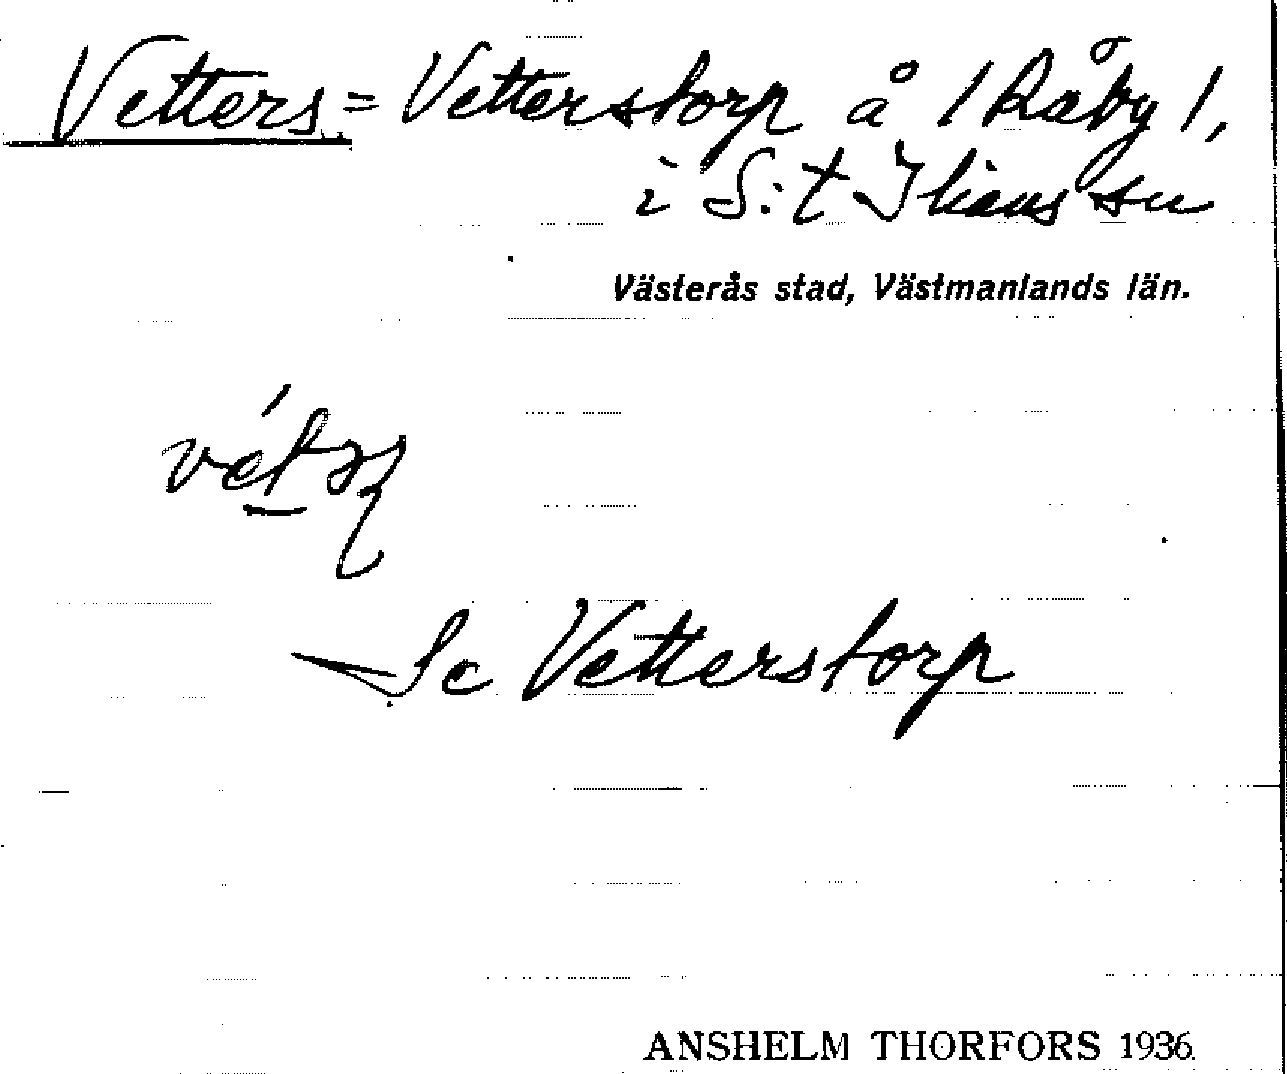 Vetters = Vetterstorp å / Råby /,
i S:t Ilians sn
Västerås stad, Västmanlands län.
Se Vetterstorp
ANSHELM THORFORS 1936.